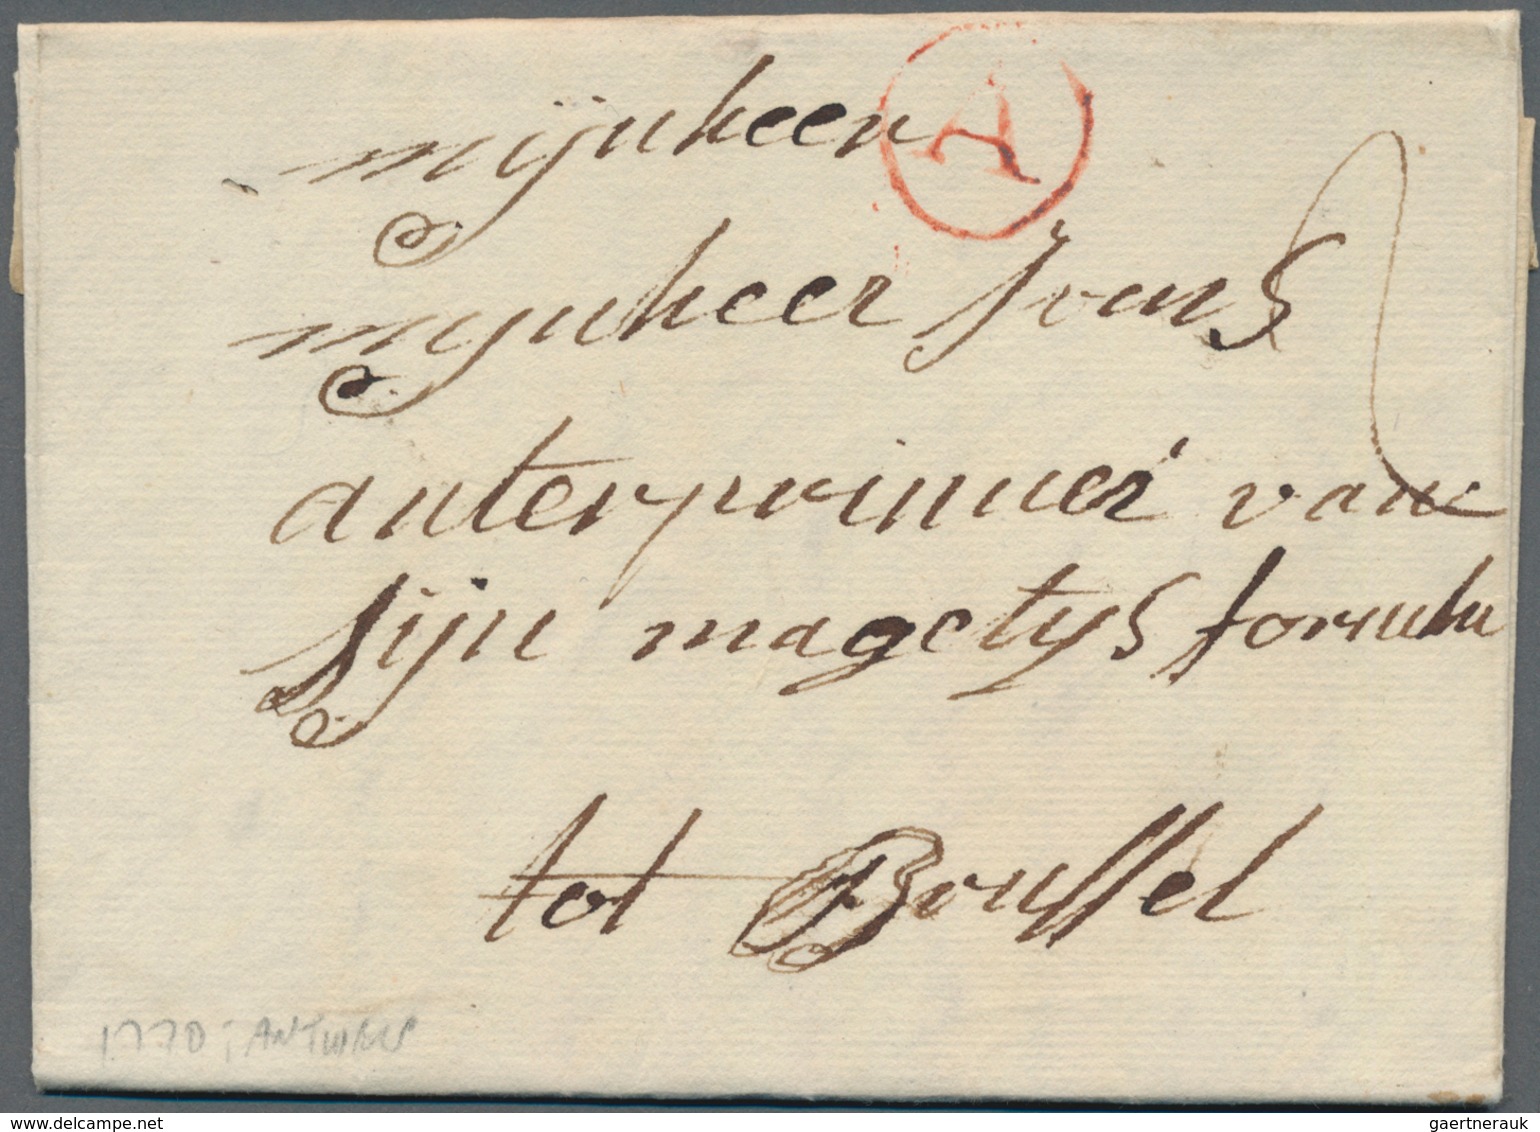 A
mijnheer
mynheer Jvans
anterprinner van
sijn magetys
tot Brussel
1770; ANTWERP
gaertnerauk
www.delcampe.net